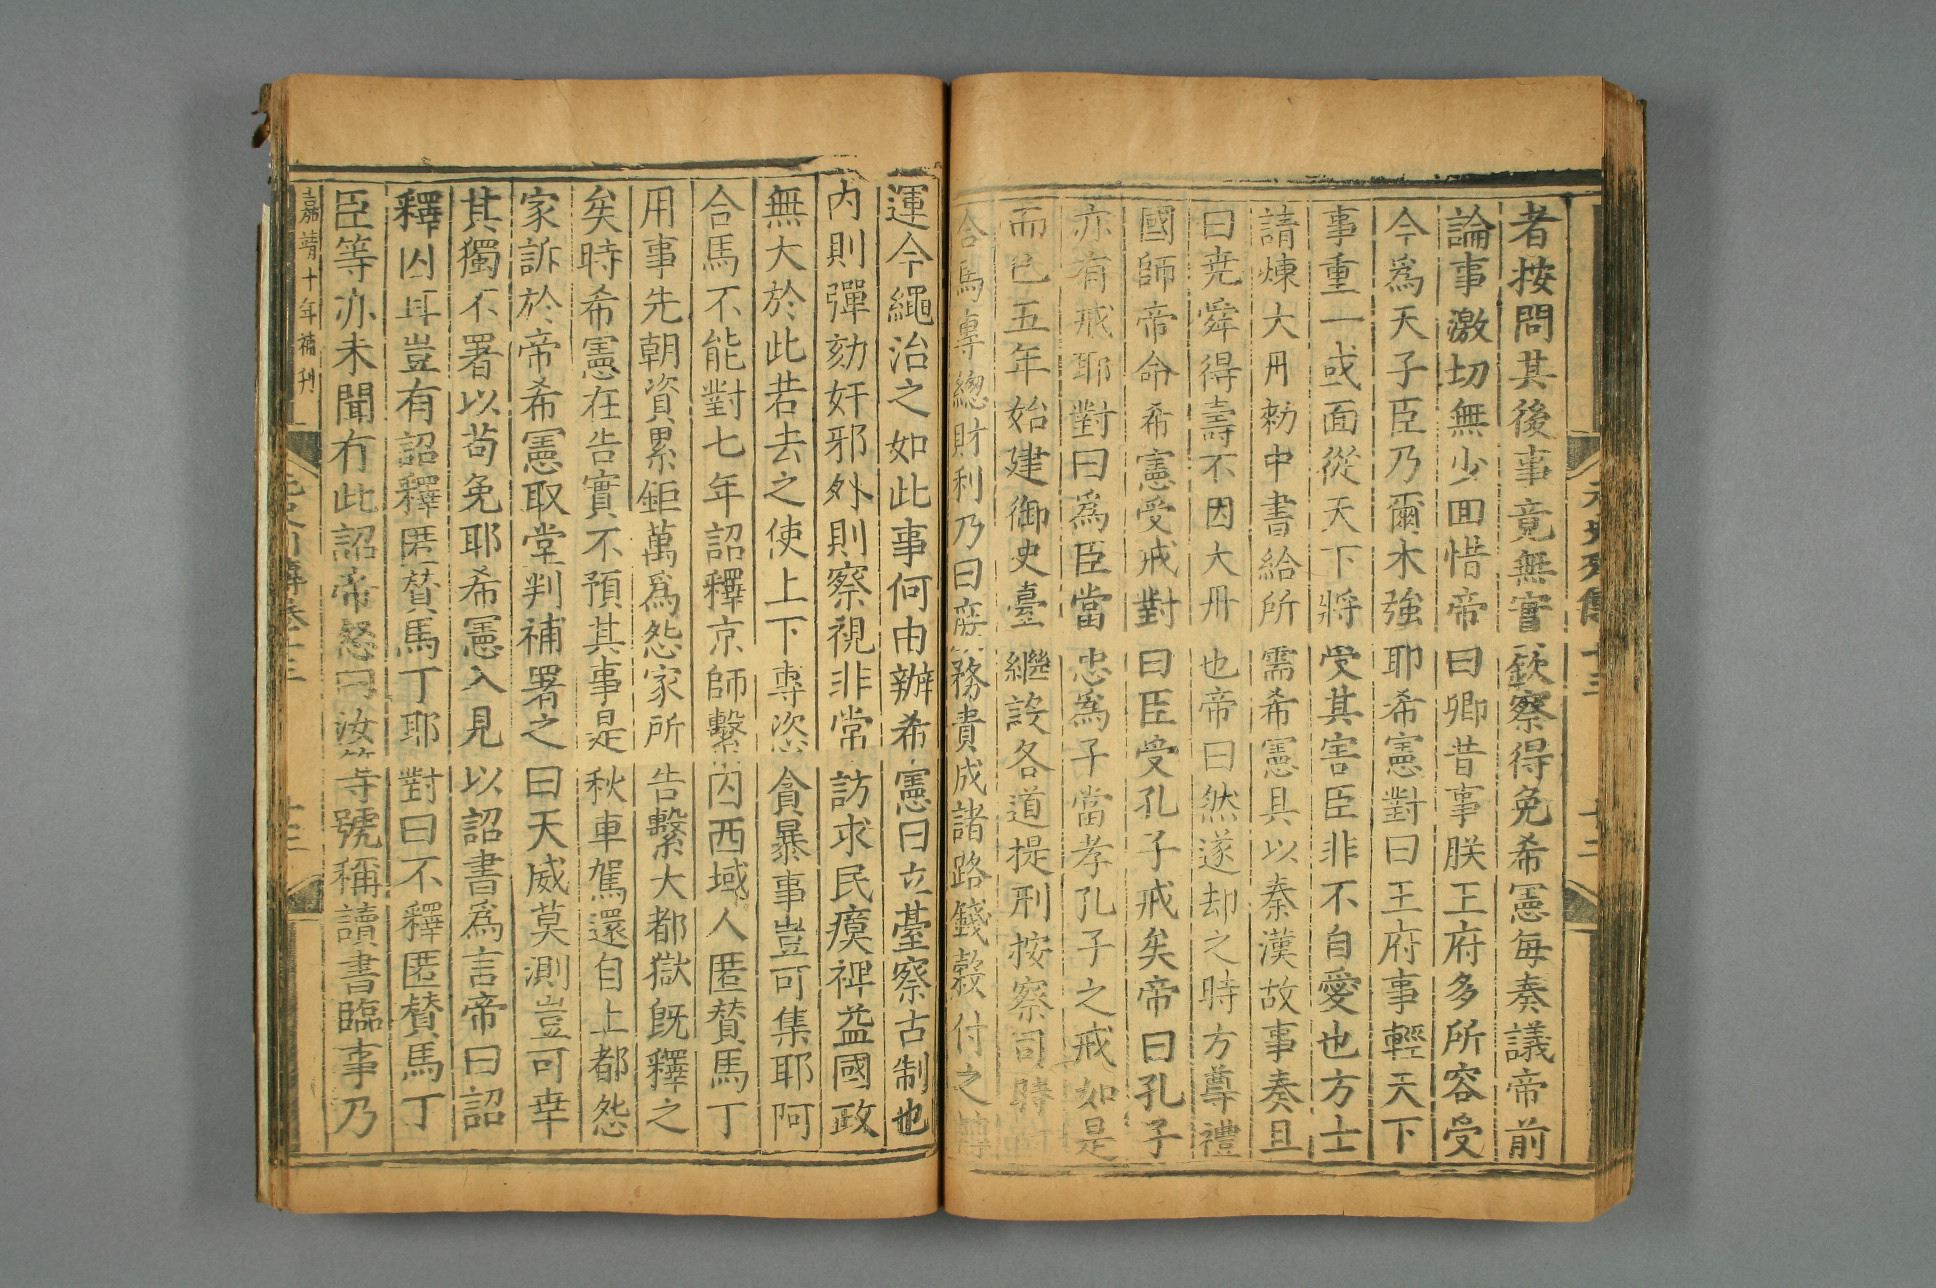 元史列傳十三
十二
者按問其後事竟無實欽察得免希憲每奏議帝前
論事激切無少回惜帝曰卿昔事朕王府多所容受
今爲天子臣乃爾木強耶希憲對曰王府事輕天下
事重一或面從天下將受其害臣非不自愛也方士
請煉大丹勑中書給所需希憲具以秦漢故事奏且
曰尭舜得壽不因大丹也帝曰然遂却之時方尊禮
國師帝命希憲受戒對曰臣受孔子戒矣帝曰孔子
亦有戒耶對曰爲臣當忠爲子當孝孔子之戒如是
而已五年始建御史臺繼設各道提刑按察司時
合馬專總財利乃曰庶務責成諸路錢穀付之轉
運今繩治之如此事何由辦希憲曰立臺察古制也
内則彈劾奸邪外則察視非常訪求民瘼裨益國政
無大於此若去之使上下專恣貪暴事豈可集耶阿
合馬不能對七年詔釋京師繫囚西域人匿贊馬丁
用事先朝資累鉅萬爲怨家所告繫大都獄既釋之
矣時希憲在告實不預其事是秋車駕還自上都怨
家訴於帝希憲取堂判補署之曰天威莫測豈可幸
其獨不署以苟免耶希憲入見以詔書爲言帝曰詔
釋囚耳豈有詔釋匿贊馬丁耶對曰不釋匿贊馬丁
臣等亦未聞有此詔帝怒曰汝等號稱讀書臨事乃
嘉靖十年補刊
元史列傳卷十三
十二